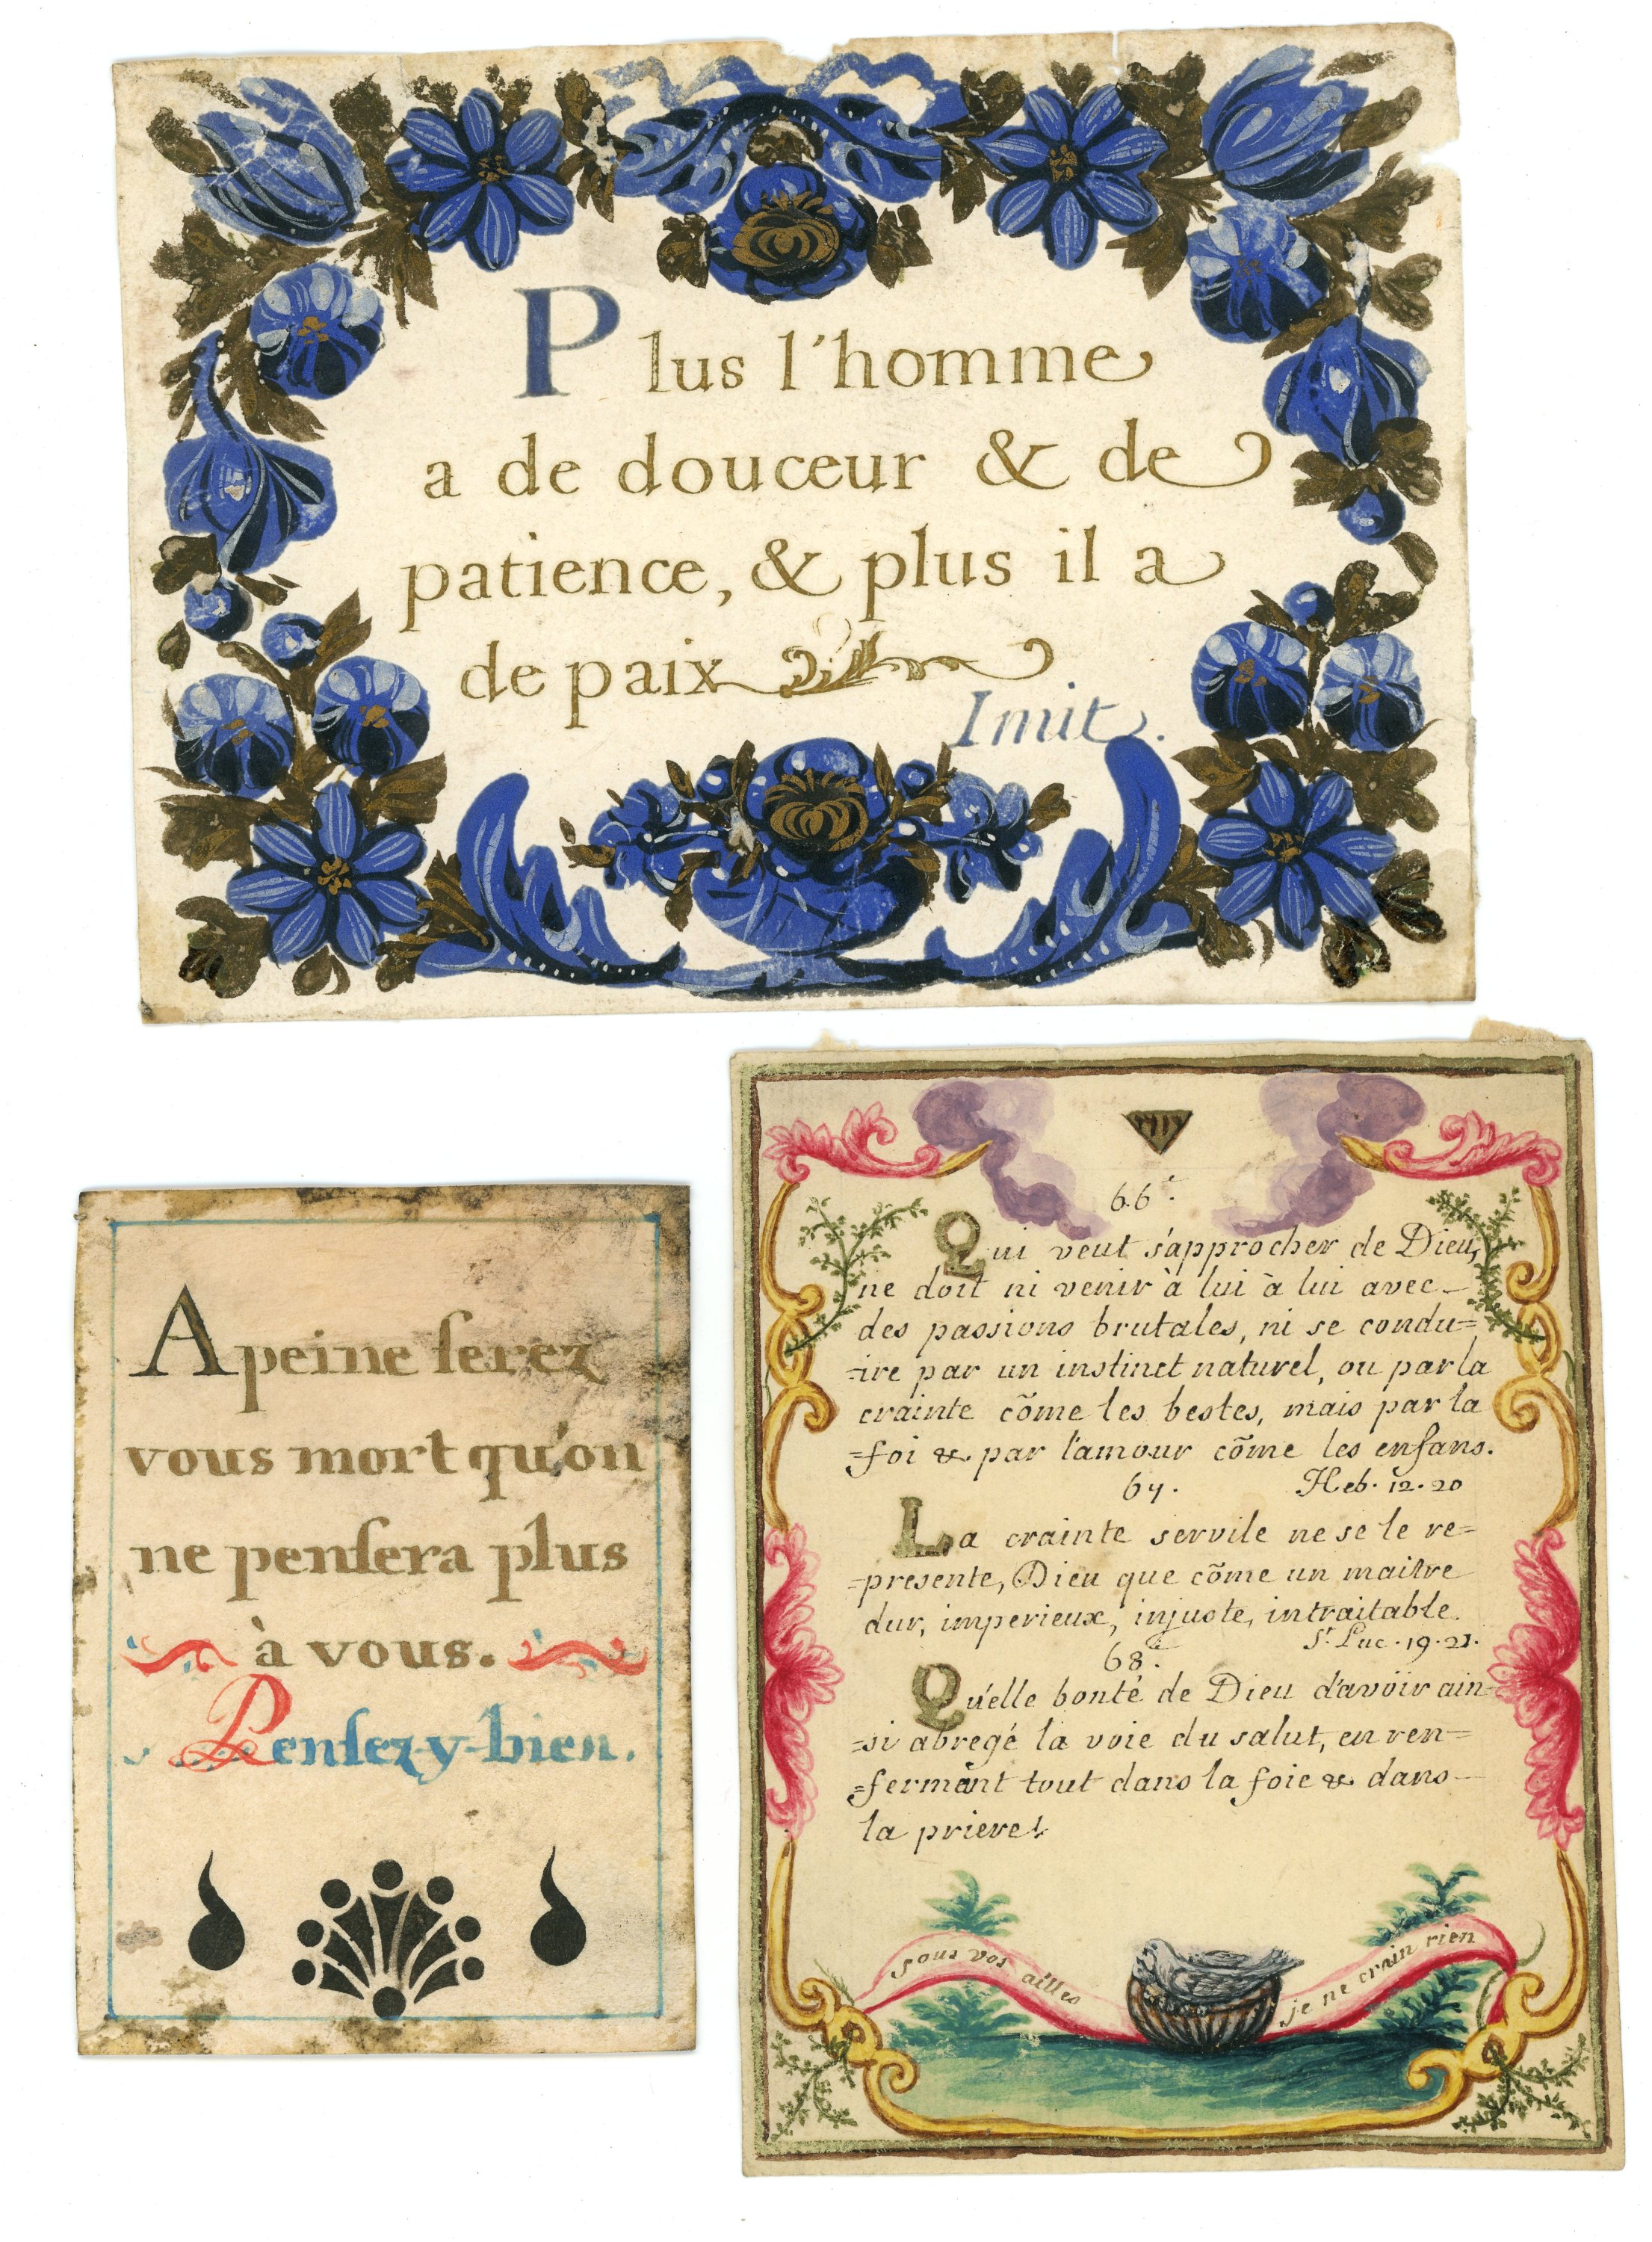 Plus l'homme
a de douceur & de
patience, & plus il a
de paix
Imit.
Apeine serez
vous mort qu'on
ne pensera plus
à vous.
Pensez-y-bien.
66.e
Qui veut s'approcher de Dieu,
ne doit ni venir à lui à lui avec
des passions brutales, ni se condu=
-ire par un instinct naturel, ou par la
crainte cõme les bestes, mais par la
=foi & par l'amour cõme les enfans.
67. Heb. 12. 20
La crainte servile ne se le re=
=presente, Dieu que cõme un maitre
dur, imperieux, injuste, intraitable.
St Luc. 19. 21.
68.e
Qu'elle bonté de Dieu d'avoir ain-
=si abregé la voie du salut, en ren=
=fermant tout dans la foie & dans
la priere!
sous vos ailles je ne crain rien